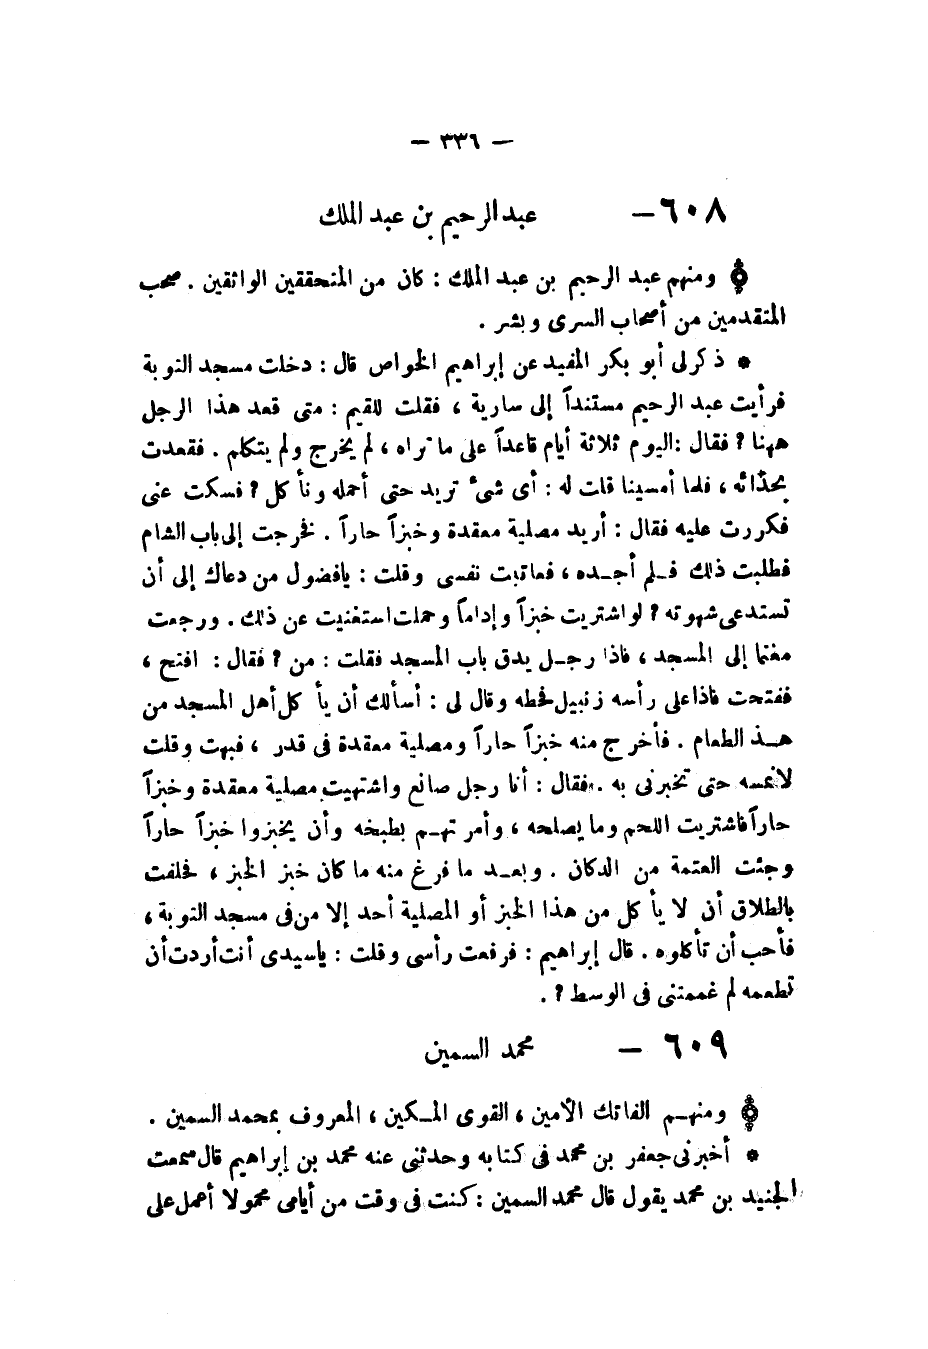 — ٣٣٦ —
٦٠٨ — عبد الرحيم بن عبد الملك
۞ ومنهم عبد الرحيم بن عبد الملك : كان من المتحققين الواثقين . صحب
المتقدمين من أصحاب السرى وبشر .
* ذكر لى أبو بكر المفيد عن إبراهيم الخواص قال : دخلت مسجد التوبة
فرأيت عبد الرحيم مستنداً إلى سارية ، فقلت للقيم : متى قعد هذا الرجل
ههنا ؟ فقال : اليوم ثلاثة أيام قاعداً على ما تراه ، لم يخرج ولم يتكلم . فقعدت
بحذائه ، فلما أمسينا قلت له : أى شىء تريد حتى أحمله ونأكل ؟ فسكت عنى
فكررت عليه فقال : أريد مصلية معقدة وخبزاً حاراً . فخرجت إلى باب الشام
فطلبت ذلك فـلم أجـده ، فعاتبت نفسى وقلت : يافضول من دعاك إلى أن
تستدعى شهوته ؟ لو اشتريت خبزاً وإداماً وحملت استغنيت عن ذلك . ورجعت
مغتما إلى المسجد ، فاذا رجـل يدق باب المسجد فقلت : من ؟ فقال : افتح ،
ففتحت فاذا على رأسه زنبيل فحطه وقال لى : أسألك أن يأكل أهل المسجد من
هـذ الطعام . فأخرج منه خبزاً حاراً ومصلية معقدة فى قدر ، فبهت وقلت
لانمسه حتى تخبرنى به . فقال : أنا رجل صانع واشتهيت مصلية معقدة وخبزاً
حاراً فاشتريت اللحم وما يصلحه ، وأمرتهـم بطبخه وأن يخبزوا خبزاً حاراً
وجئت العتمة من الدكان . وبعـد ما فرغ منه ما كان خبز الخبز ، فحلفت
بالطلاق أن لا يأكل من هذا الخبز أو المصلية أحد إلا من فى مسجد التوبة ،
فأحب أن تأكلوه . قال إبراهيم : فرفعت رأسى وقلت : ياسيدى أنت أردت أن
تطعمه لم غممتنى فى الوسط ؟ .
٦٠٩ — محمد السمين
۞ ومنهـم الفاتك الأمين ، القوى المـكين ، المعروف بمحمد السمين .
* أخبرنى جعفر بن محمد فى كتابه وحدثنى عنه محمد بن إبراهيم قال سمعت
الجنيد بن محمد يقول قال محمد السمين : كنت فى وقت من أيامى محمولا أعمل على